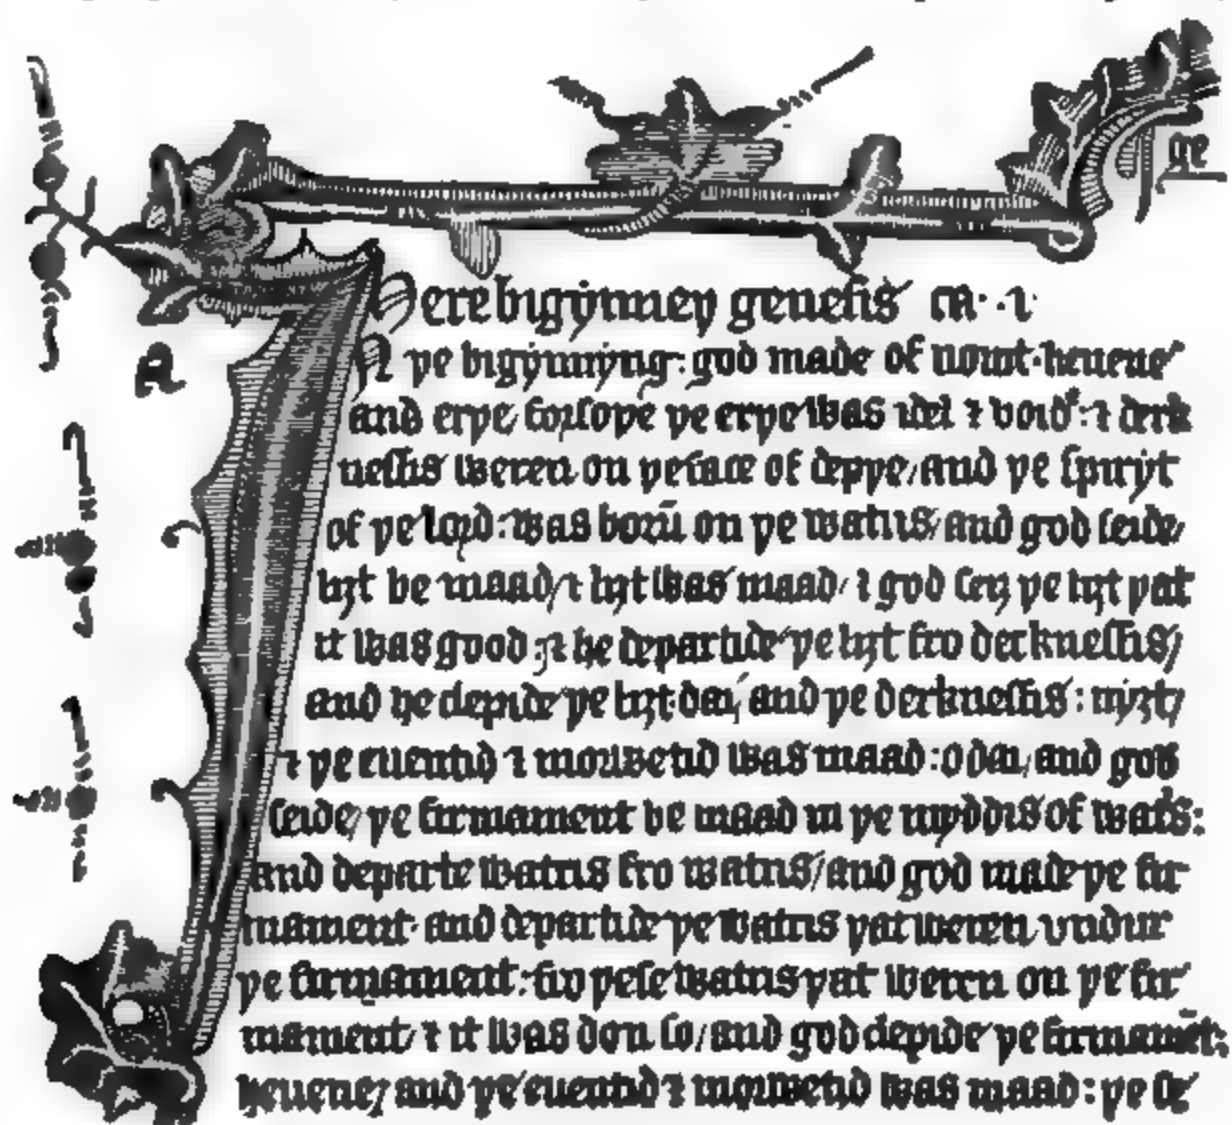 ge
Here bigẏnneþ genesis ca· ·i·
A
IN þe bigẏnnẏng: god made of nouȝt· heuene
and erþe/ forsoþe þe erþe was idel ⁊ void: ⁊ derk
nessis weren on þe face of depþe/ and þe spirẏt
of þe lord: was borū on þe watris/ and god seide/
liȝt be maad/ ⁊ liȝt was maad/ ⁊ god seiȝ þe liȝt þat
it was good: ⁊ he departide þe liȝt fro derknessis/
and he clepide þe liȝt· dai/ and þe derknessis: nẏȝt/
⁊ þe euentid ⁊ morwetid was maad: o dai/ and god
seide/ þe firmament be maad in þe mẏddis of watˢ:
and departe watris fro watris/ and god made þe fir
mament· and departide þe watris þat weren vndur
þe firmament: fro þese watris þat weren on þe fir
mament/ ⁊ it was don so/ and god clepide þe firmamēt:
heuene/ and þe euentid ⁊ morwetid was maad: þe se